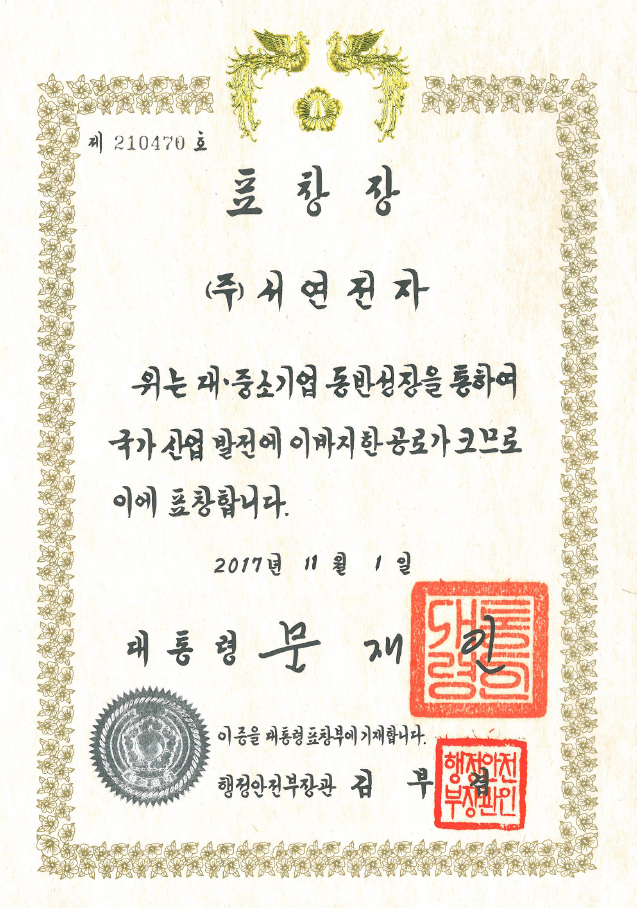 제 210470 호
표창장
(주)서연전자
위는 대·중소기업 동반성장을 통하여
국가 산업 발전에 이바지한 공로가 크므로
이에 표창합니다.
2017년 11월 1일
대통령 문재인
대통령의인
이증을 대통령표창부에기재합니다.
행정안전부장관 김부겸
행정안전부장관인